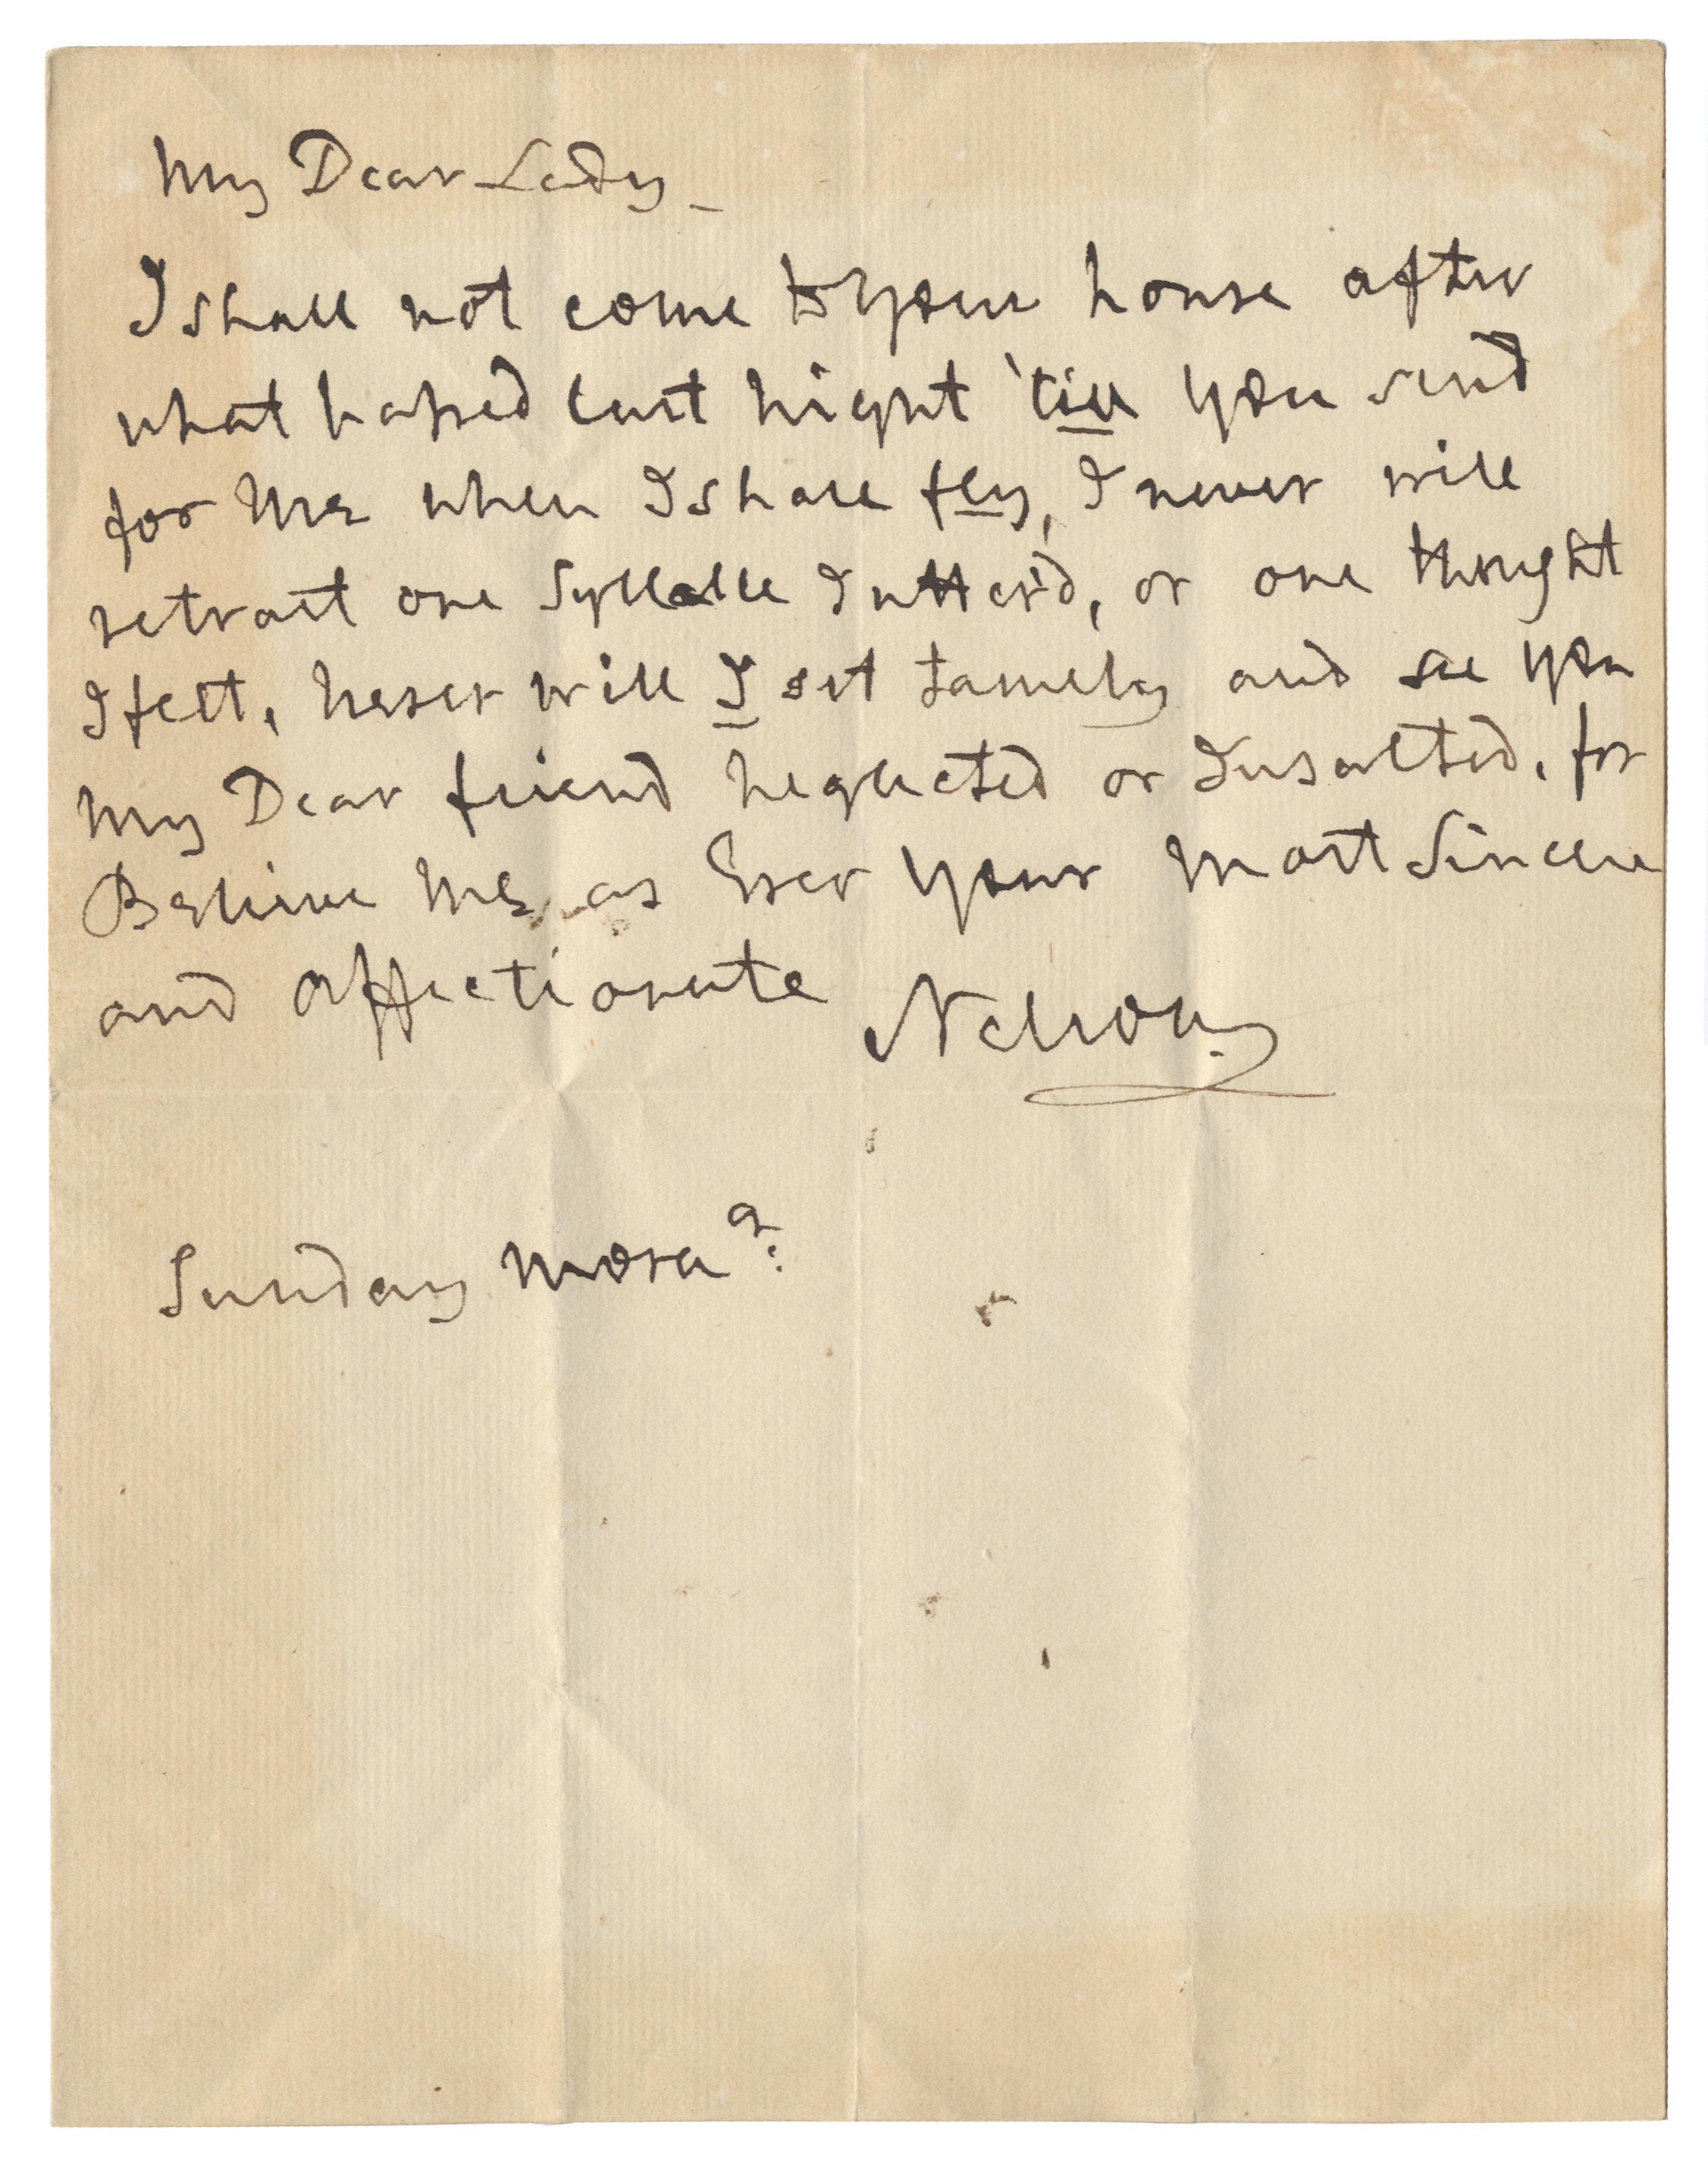 My Dear Lady_
I shall not come to your house after
what hapned last night 'till you send
for Me when I shall fly, I never will
retract one Syllable I utter'd, or one thought
I felt, never will I set tamely and see you
My Dear friend neglected or Insulted, for
Believe Me as Ever your most Sincere
and affectionate Nelson
Sunday morng: